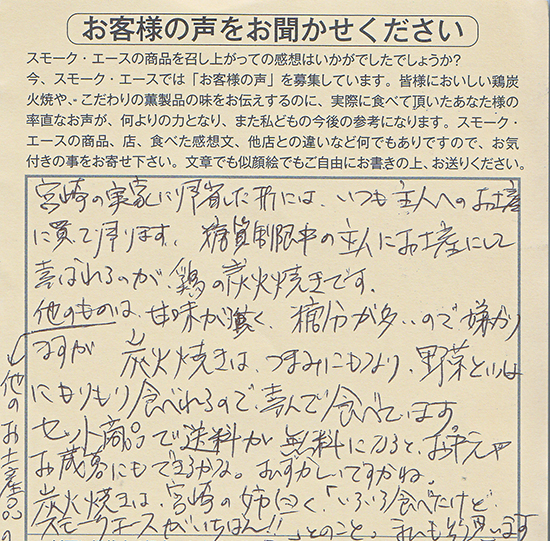 お客様の声をお聞かせください
スモーク・エースの商品を召し上がっての感想はいかがでしたでしょうか?
今、スモーク・エースでは「お客様の声」を募集しています。皆様においしい鶏炭
火焼や、こだわりの薫製品の味をお伝えするのに、実際に食べて頂いたあなた様の
率直なお声が、何よりの力となり、また私どもの今後の参考になります。スモーク・
エースの商品、店、食べた感想文、他店との違いなど何でもありですので、お気
付きの事をお寄せ下さい。文章でも似顔絵でもご自由にお書きの上、お送りください。
宮崎の実家に帰省した折には、いつも主人へのお土産
に買って帰ります。糖質制限中の主人にお土産にして
喜ばれるのが、鶏の炭火焼きです。
他のものは、甘味が強く、糖分が多いので嫌がり
ますが 炭火焼きは、つまみにもなり、野菜といっしょ
にもりもり食べれるので、喜んで食べています
セット商品で送料が無料になると、お中元や
お歳暮にもできるかな。おずかしいですかね。
炭火焼きは、宮崎の姉曰く、「いろいろ食べたけど
スモークエースがいちばん!!」とのこと。
他のお土産品の